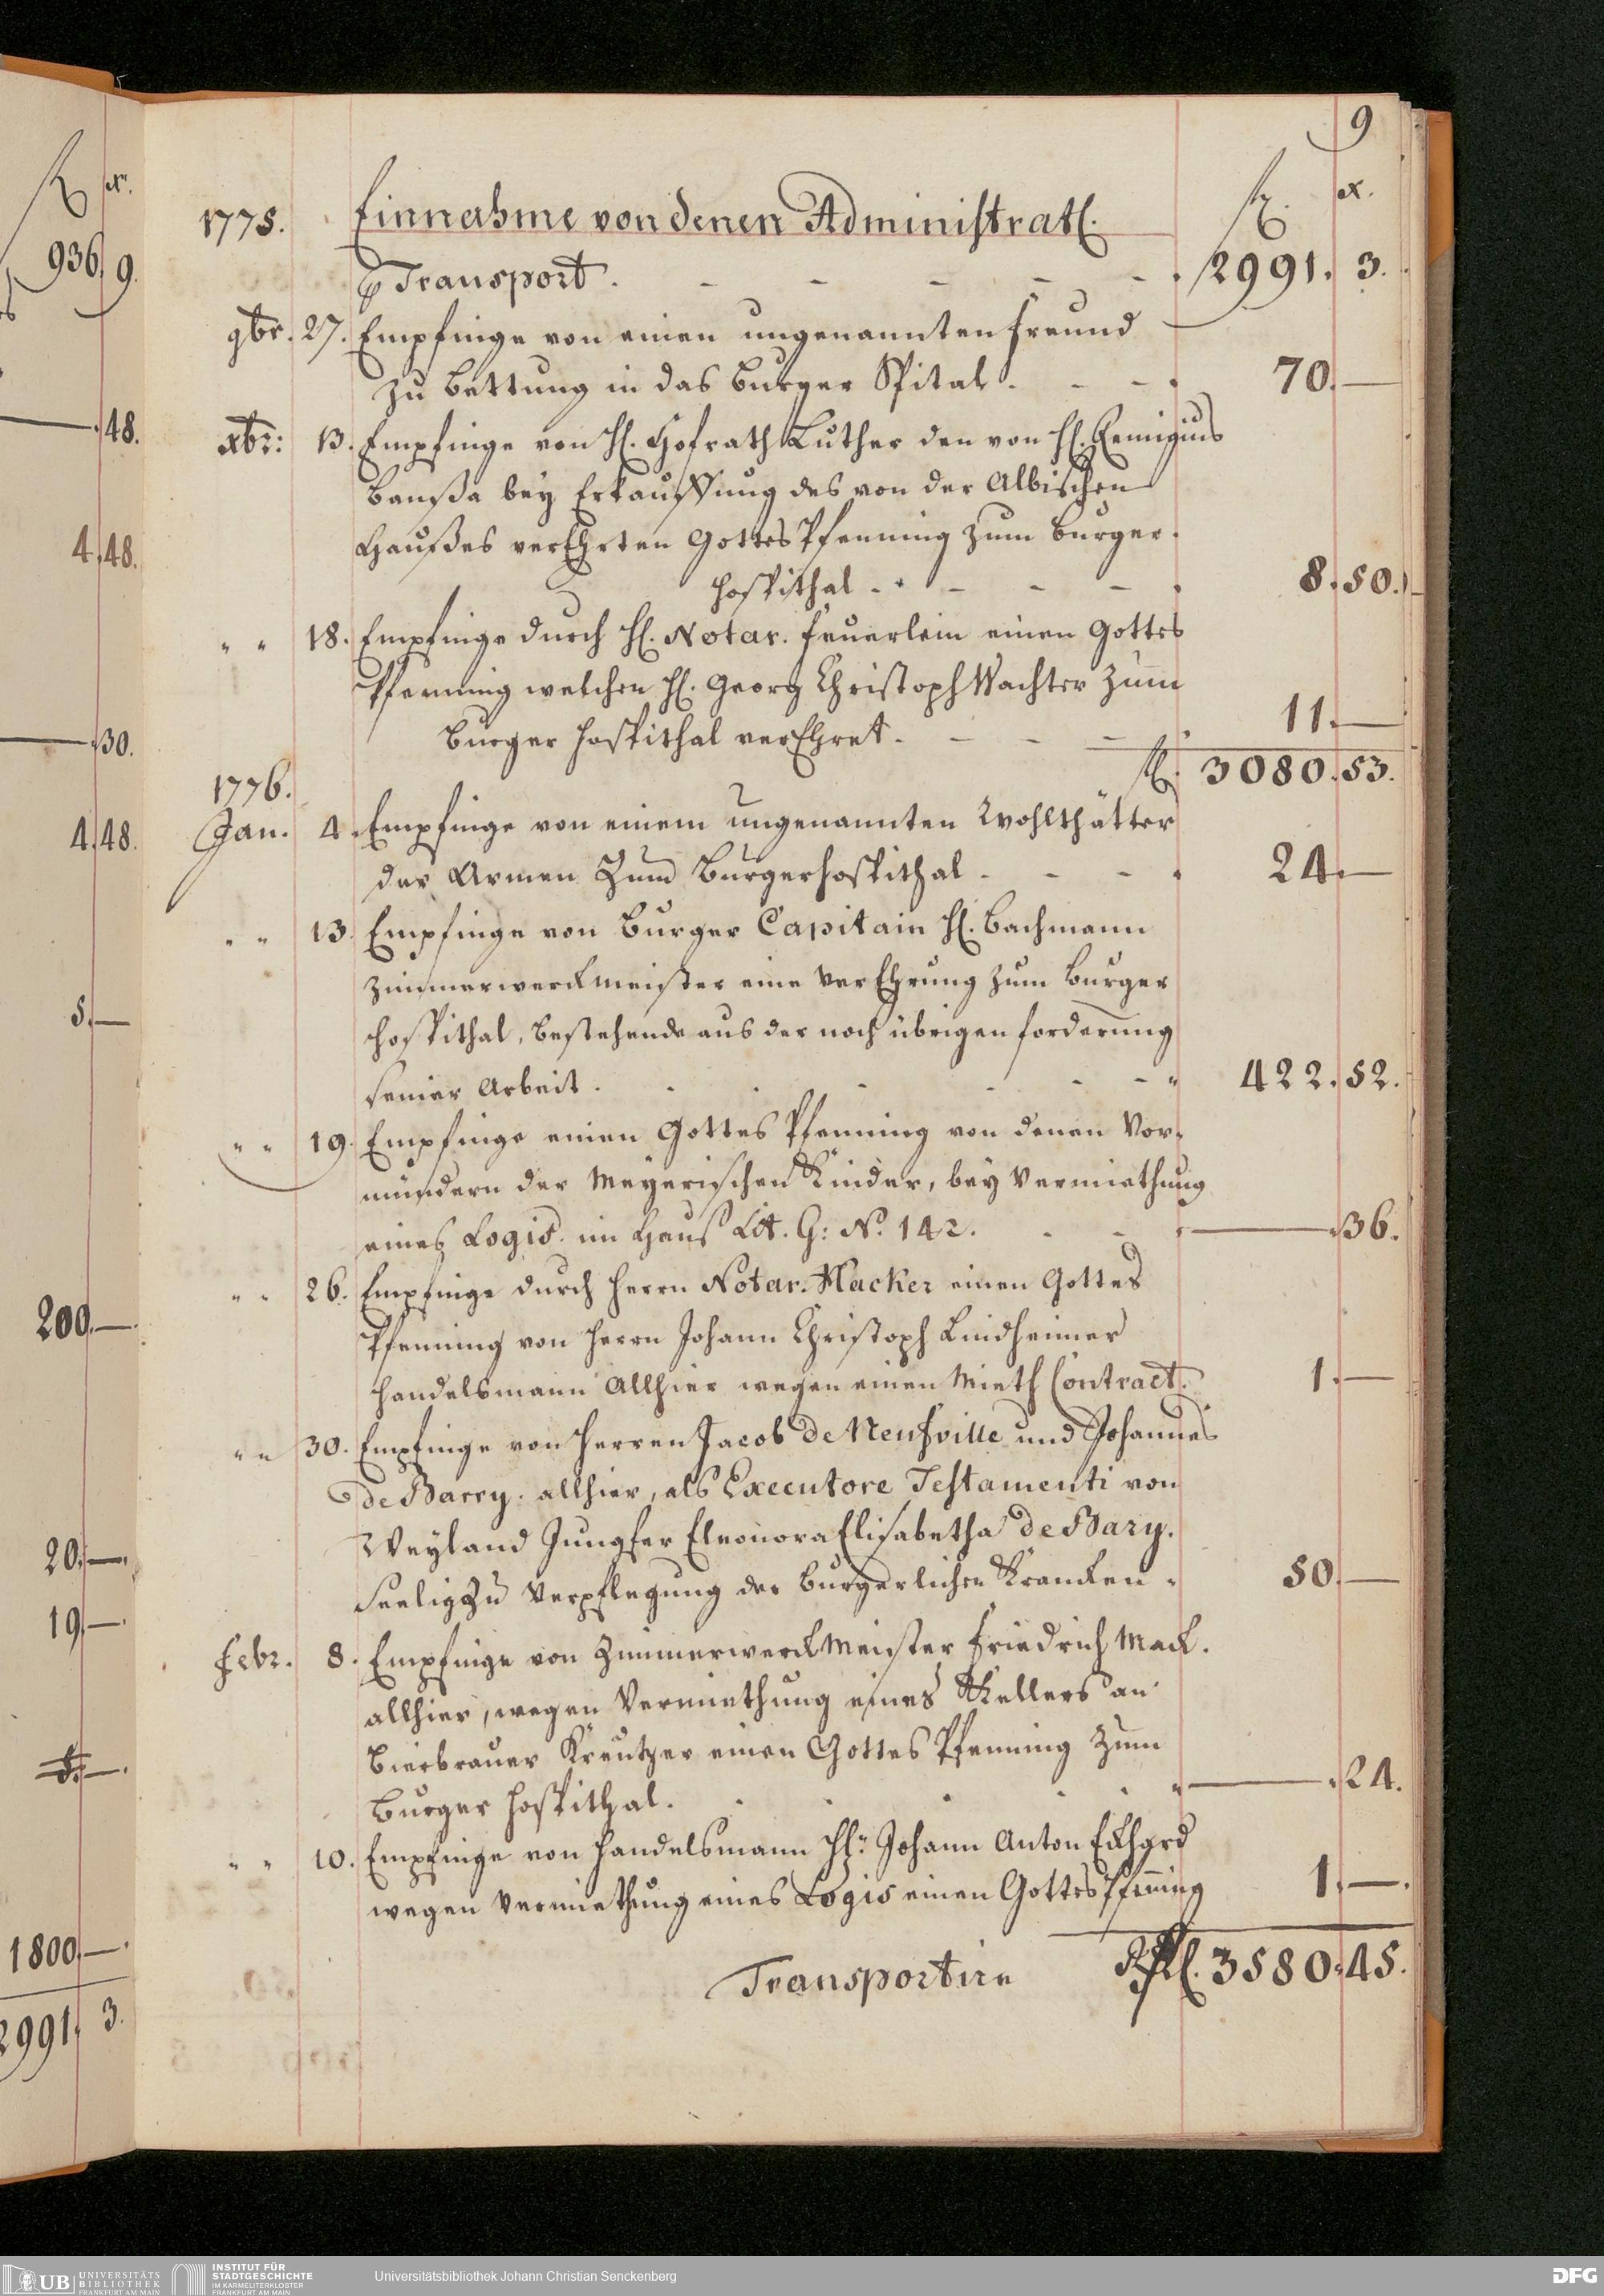 9
1775. Einnahme von denen Administrat. fl. xr.
Transport. - - - - - 2991. 3.
9br. 27. Empfinge von einen ungenannten Freund
zu Bettung in das Burger Spital. - - - 70. —
xbr: 13. Empfinge von H. Hofrath Luther den von H. Remigius
Bansa bey Erkauffung des von der Albischen
Haußes verEhrten Gottes Pfenning zum Burger-
hospithal - - - - - 8. 50.
" " 18. Empfinge durch H. Notar. Feuerlein einen Gottes
Pfenning welchen H. Georg Christoph Wachter zum
Burger Hospithal verEhret. - - - 11. —
fl. 3080. 53.
1776.
Jan. 4. Empfinge von einem ungenannten Wohlthätter
der Armen Zum Burgerhospithal - - - 24. —
" " 13. Empfinge von Burger Capitain H. Bachmann
Zimmerwerckmeister eine VerEhrung zum Burger
Hospithal, bestehende aus der noch übrigen forderung
seiner Arbeit. - - - - - 422. 52.
" " 19. Empfinge einen Gottes Pfenning von denen Vor-
mündern der Meyerischen Kinder, bey Vermiethung
eines Logis. im Hauß Lit. G: No. 142. - - — 36.
" " 26. Empfinge durch Herrn Notar. Hacker einen Gottes
Pfenning von Herrn Johann Christoph Lindheimer
Handelsmann Allhier wegen einen Mieth Contract. 1. —
" " 30. Empfinge von Herren Jacob de Neufville und Johannes
de Barry. allhier, als Executore Testamenti von
Weyland Jungfer Eleonora Elisabetha de Bary.
Seelig zu Verpflegung der Burgerlichen Krancken - 50. —
Febr. 8. Empfinge von Zimmerwerck Meister Friedrich Mack.
allhier, wegen Vermiethung eines Kellers an
Bierbrauer Kreutzer einen Gottes Pfenning Zum
Burger Hospithal. - - - — 24.
" " 10. Empfinge von Handelsmann H. Johann Anton Eckhard
wegen Vermiethung eines Logis einen Gottes Pfenning 1. —
Transportire fl. 3580. 45.
fl. xr.
936. 9.
— 48.
4. 48.
— 30.
4. 48.
5. —
200. —
20. —
19. —
5. —
1800. —
2991. 3.
UB UNIVERSITÄTS BIBLIOTHEK FRANKFURT AM MAIN
INSTITUT FÜR STADTGESCHICHTE IM KARMELITERKLOSTER FRANKFURT AM MAIN
Universitätsbibliothek Johann Christian Senckenberg
DFG